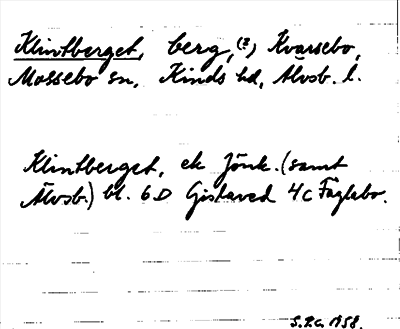 Klintberget, berg, (?) Kvarsebo,
Mossebo sn, Kinds hd, Älvsb. l.
Klintberget, ek Jönk. (samt
Älvsb.) bl. 6D Gislaved 4c Fåglabo.
1958.